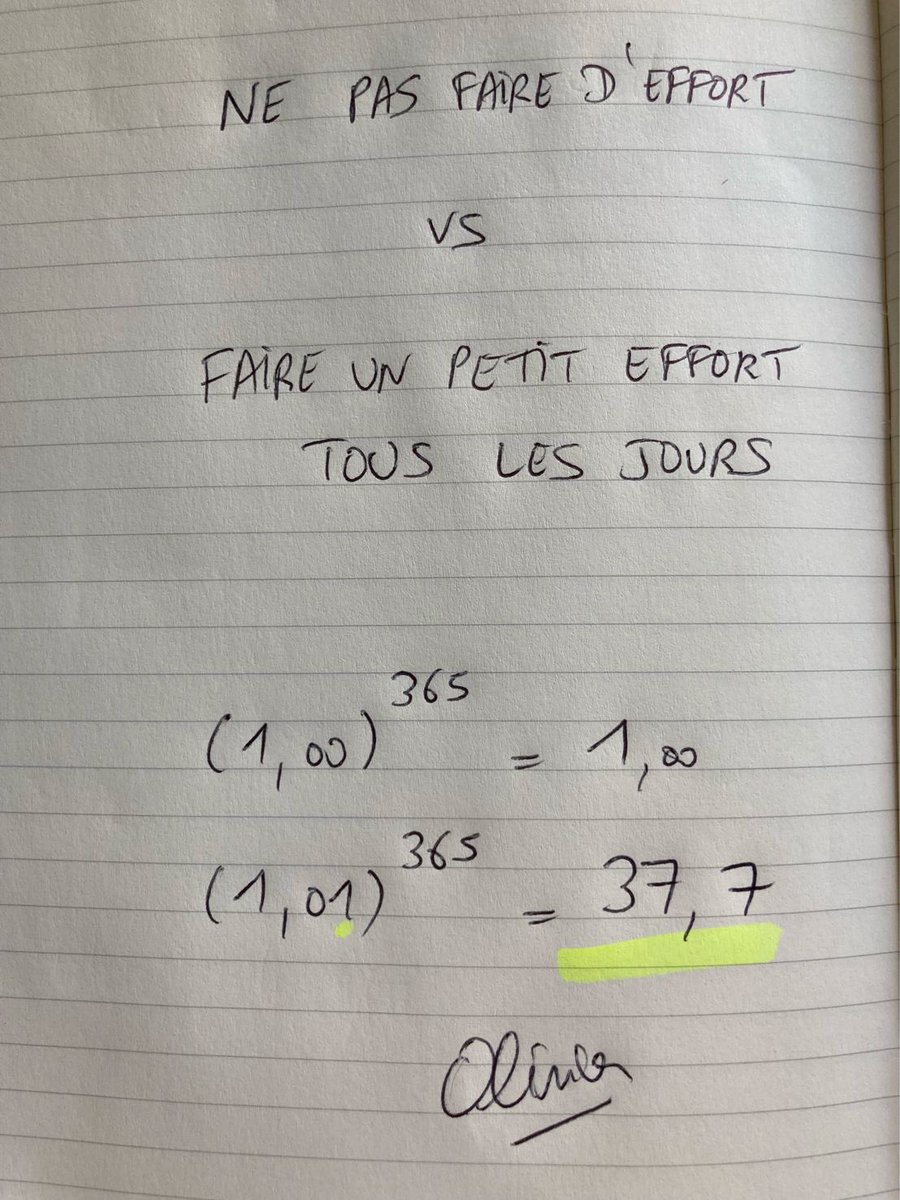 NE PAS FAIRE D'EFFORT
VS
FAIRE UN PETIT EFFORT
TOUS LES JOURS
(1,00)^365 = 1,00
(1,01)^365 = 37,7
Olivier